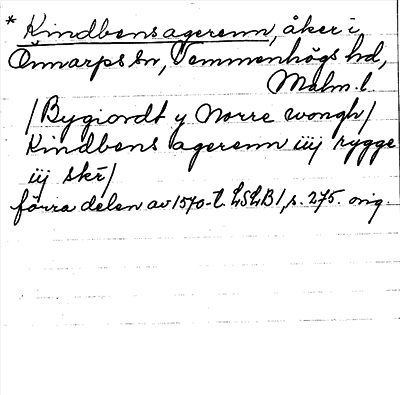 * Kindbensagerenn, åker i
Önnarps sn, Vemmenhögs hd,
Malm. l
/Bygiordt y Norre wongh/
Kindbens agerenn iiij rygge
iij skr/
förra delen av 1570-t. LSLB 1, s. 275. orig.